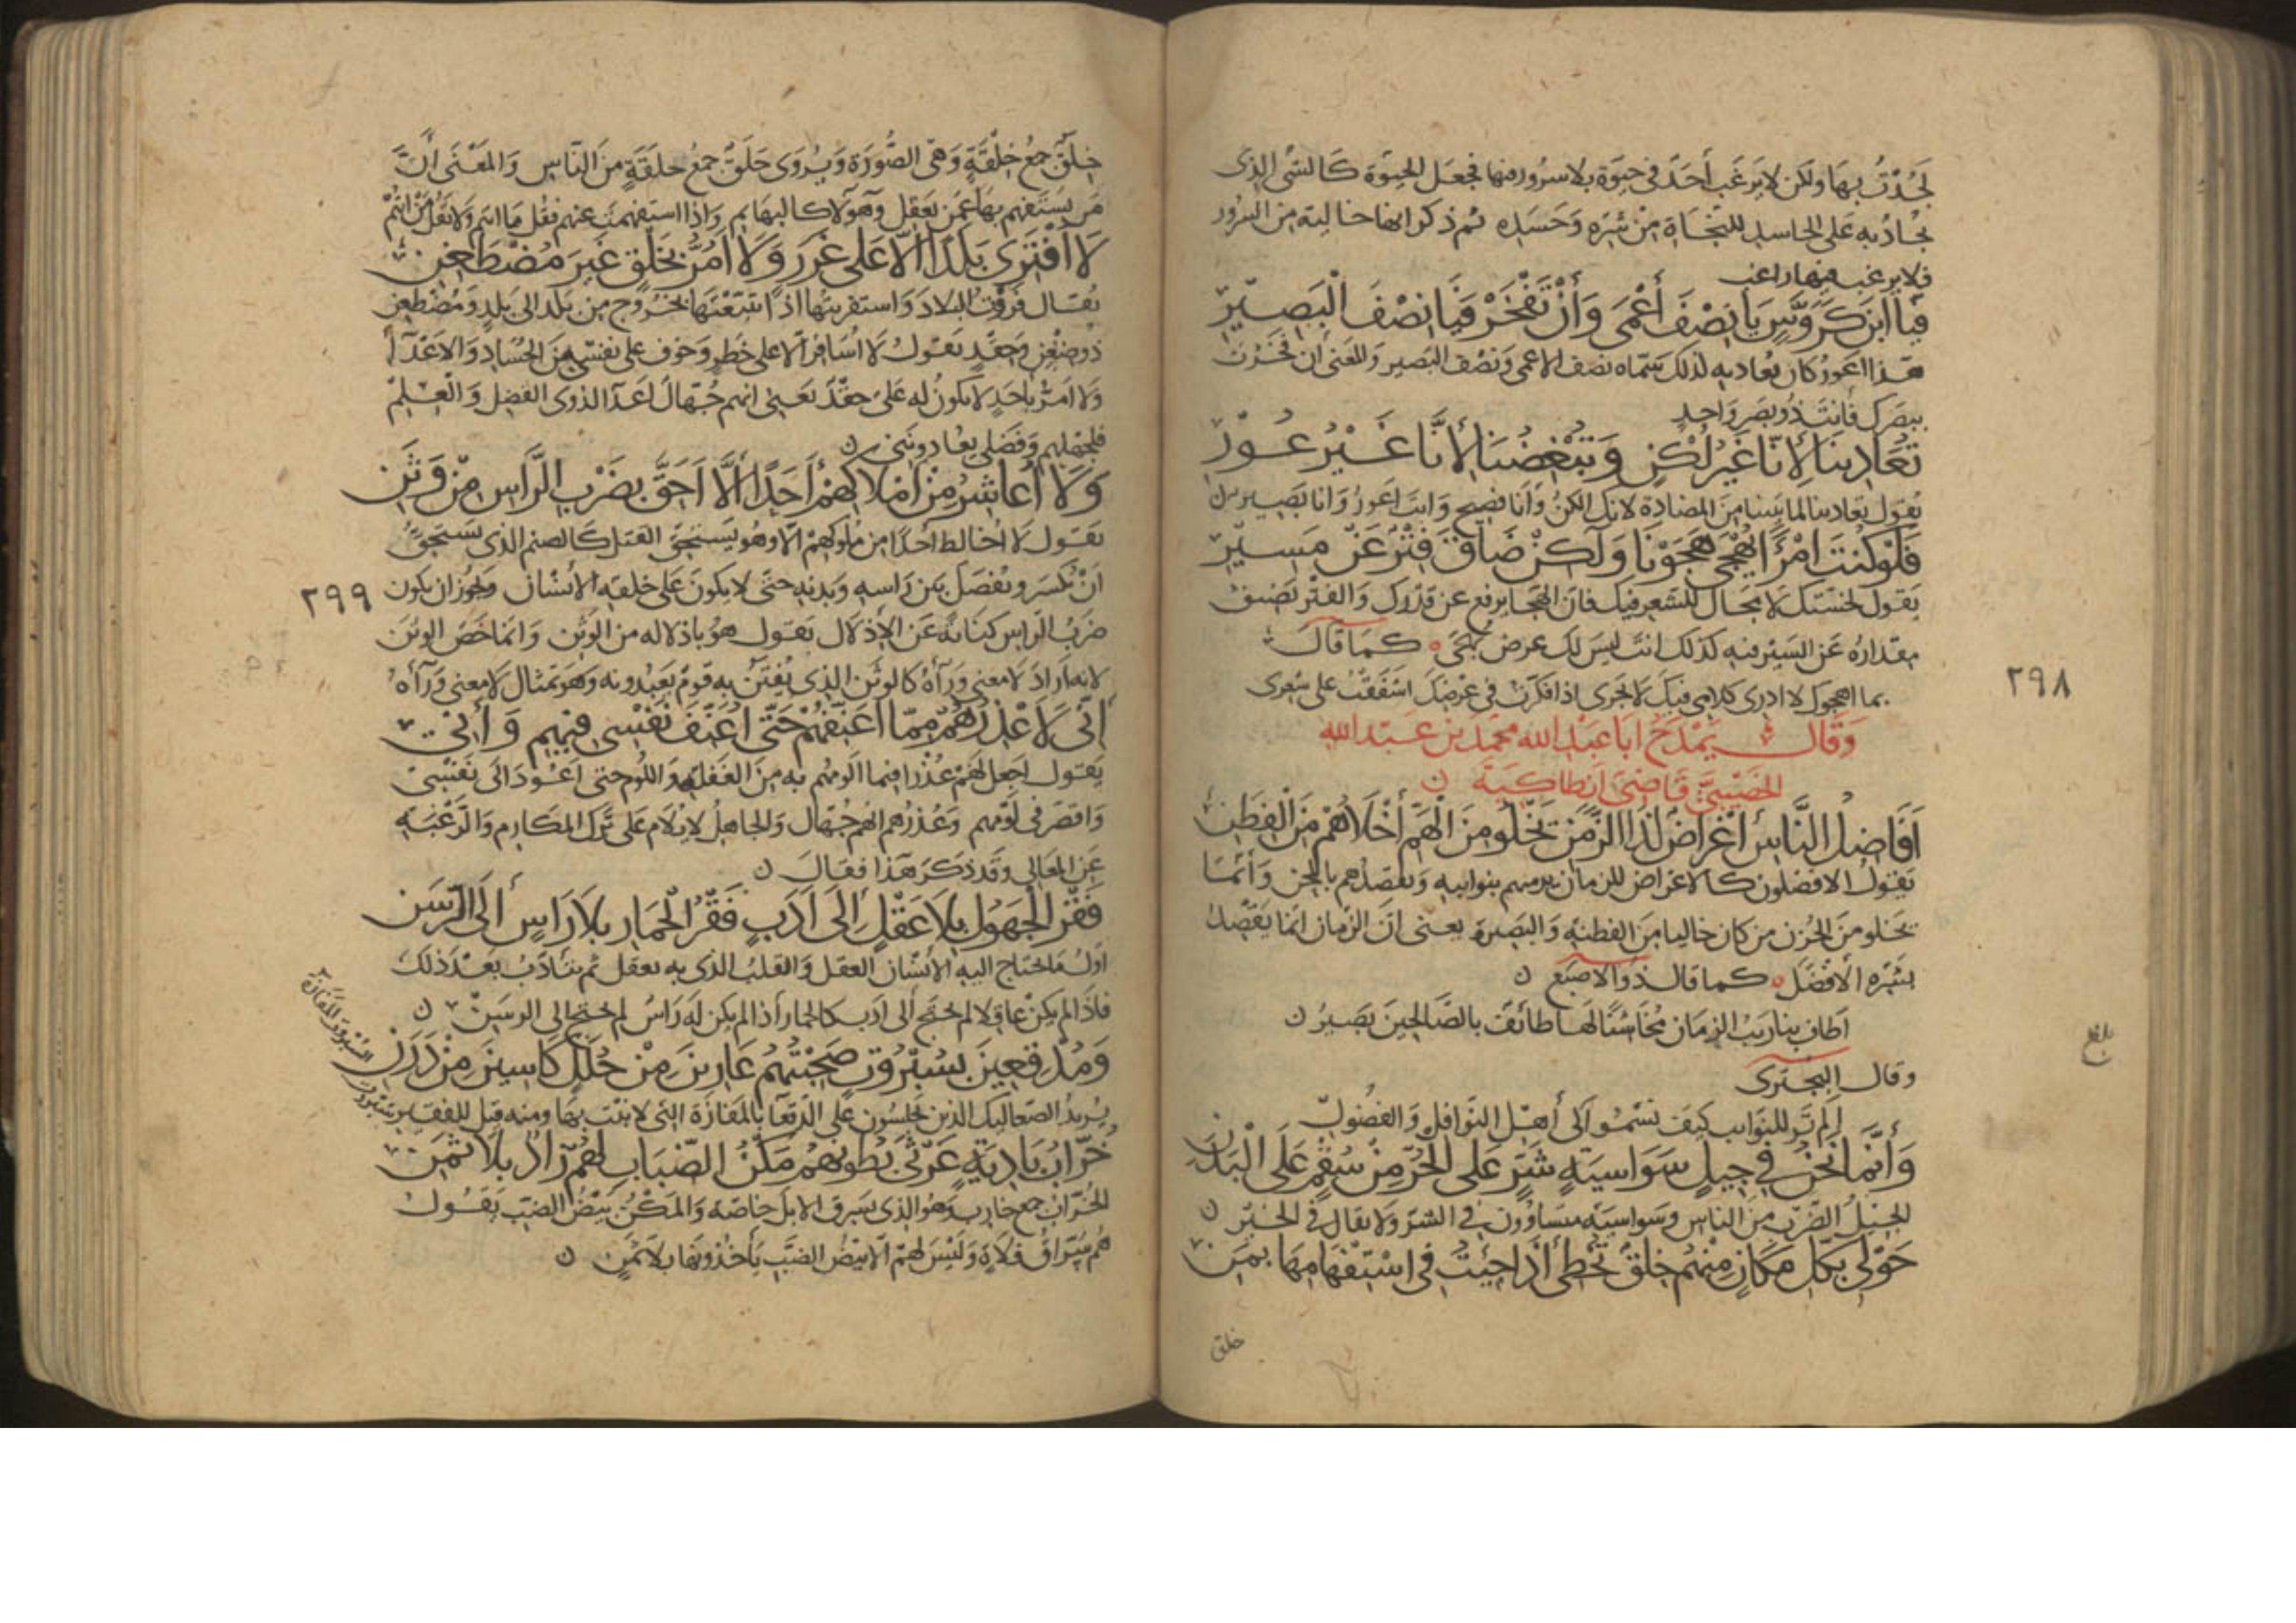 لجُدْتُ بها ولكن لا يرغب أحد في حيوة بلا سرور فيها فجعل الحيوة كالشي الذي
يجاد به على الحاسد للنجاة من شره وحسده ثم ذكر انها خالية من السرور
فلا يرغب فيها راغب
فَيَا ابْنَ كَرَوَّسٍ يَا نِصْفَ أَعْمَى وَأَنْ تَفْخَرْ فَيَا نِصْفَ الْبَصِيرِ
هذا اعور كان يعاديه لذلك سماه نصف الاعمى ونصف البصير والمعنى ان فخرت
ببصرك فانت ذو بصر واحد
تُعَادِينَا لأِنَّا غَيْرُ لُكْنٍ وَتُبْغِضُنَا لأِنَّا غَيْرُ عُورِ
يقول تعادينا لما بيننا من المضادة لانك الكن وانا فصيح وانت اعور وانا بصير ن
فَلَوْ كُنْتَ امْرَأً يُهْجَى هَجَوْنَا وَلَكِنْ ضَاقَ فِتْرٌ عَنْ مَسِيرِ
يقول لخستك لا مجال للشعر فيك فان الهجا يرتفع عن قدرك والفتر تضيق
مقداره عن السير فيه كذلك انت ليس لك عرض يُهجى كما قال
بما اهجوك لا ادرى كلامي فيك لا يجرى اذا فكرت في عرضك اشفقت على شعرى
وَقَال يَمْدَحُ ابَا عَبْدِ الله محمد بن عَبدِ الله
الخصيبىّ قَاضِىَ انطاكيَة ن
أَفَاضِلُ النَّاسِ أَغْرَاضٌ لِذَا الزَّمَنِ يَخْلُو مِنَ الْهَمِّ أَخْلَاهُمْ مِنَ الْفِطَنِ
يقول الافضلون كالاغراض للزمان يرميهم بنوائبه ويقصدهم بالمحن وانما
يخلو من الحزن من كان خاليا من الفطنة والبصيرة يعنى ان الزمان انما يقصد
بشره الافضل كما قال ذو الاصبع ن
اطاف بنا ريب الزمان فداسنا لها طائف بالصالحين بصير ن
وقال البحترى
الم تر للنوايب كيف تسمو الى أهل النوافل والفضول
وَأَنَّمَا نَحْنُ فِي جِيلٍ سَوَاسِيَةٍ شَرٍّ عَلَى الْحُرِّ مِنْ سُقْمٍ عَلَى الْبَدَنِ
الجيل الضرب من الناس وسواسية متساوون في الشر ولا يقال في الخير ن
حَوْلِى بِكُلِّ مَكَانٍ مِنْهُمُ خِلَقٌ تُخْطِى أَذَا جِئْتَ فِي اسْتِفْهَامِهَا بِمَنِ
خلق
٢٩٨
بلغ
خِلَقٌ جمع خلقة وهى الصورة ويروى حَلَق جمع حلقة من الناس والمعنى أن
من يستفهم بها عمن يعقل وهولا كالبهايم واذا استفهمت عنهم فقل ما انتم ولا تقل من انتم
لَا أَقْتَرِى بَلَدًا الّا عَلَى غَرَرٍ وَلَا أَمُرُّ بِخَلْقٍ غَيْرِ مُضْطَغِنِ
يقال قروت البلاد واستقريتها اذا تتبعتها تخرج من بلد الى بلد ومضطغن
ذو ضغن وحقد يقول لا اسافر الا على خطر وخوف على نفسى من الحساد والاعدآ
ولا امر باحد لا يكون له على حقد يعنى انهم جهال اعدآ لذوى الفضل والعلم
فلجهلهم وفضلى يعادوننى ن
وَلَا أُعَاشِرُ مِنْ أَمْلَاكِهِمْ أَحَدًا أَلَّا أَحَقَّ بِضَرْبِ الرَّاسِ مِنْ وَثَنِ
يقول لا اخالط احدا من ملوكهم الا وهو يستحق القتل كالصنم الذى يستحق
ان يكسر ويفصل بين راسه وبدنه حتى لا يكون على خلقة الانسان ويجوز ان يكون
ضرب الراس كناية عن الاذلال يقول هو باذلاله من الوثن وانما خص الوثن
لانه اراد لا معنى ورآه كالوثن الذى يفتتن به قوم يعبدونه وهو تمثال لا معنى ورآه
٢٩٩
أِنِّى لَأَعْذِرُهُمْ مِمَّا أُعَنِّفُهُمْ حَتَّى أُعَنِّفَ نَفْسِى فِيهِمِ وَأَنِى
يقول اجعل لهم عذرا فيما الومهم به من الغفلة واللوم حتى اعود الى نفسى
واقصر في لومهم وعذرهم انهم جهال والجاهل لا يلام على ترك المكارم والرغبة
عن المعالى وقد ذكر هذا فقال ن
فَقْرُ الْجَهُولِ بِلَا عَقْلٍ إِلَى أَدَبٍ فَقْرُ الْحِمَارِ بِلَا رَاسٍ أِلَى الرَّسَنِ
اول ما يحتاج اليه الانسان العقل والقلب الذى به يعقل ثم يتادب بعد ذلك
فاذا لم يكن عاقلا لم يحتج الى ادب كالحمار أذا لم يكن له راس لم يحتج الى الرسن ن
وَمُدْقِعِينَ بِسُبْرُوتٍ صَحِبْتُهُمُ عَارِينَ مِنْ حُلَلٍ كَاسِينَ مِنْ دَرَنِ
السبروت المفازة
يريد الصعاليك الذين يجلسون على الدقعآ بالمفازة التى لا نبت بها ومنه قيل للفقير سبروت
خُرَّابُ بَادِيَةٍ غَرْثَى بُطُونُهُمُ مَكْنُ الضِّبَابِ لَهُمْ زَادٌ بِلَا ثَمَنِ
الخراب جمع خارب وهو الذى يسرق الابل خاصة والمكن بيض الضب يقول
هم سراق فلاة وليس لهم الا بيض الضب يأخذونها بلا ثمن ن